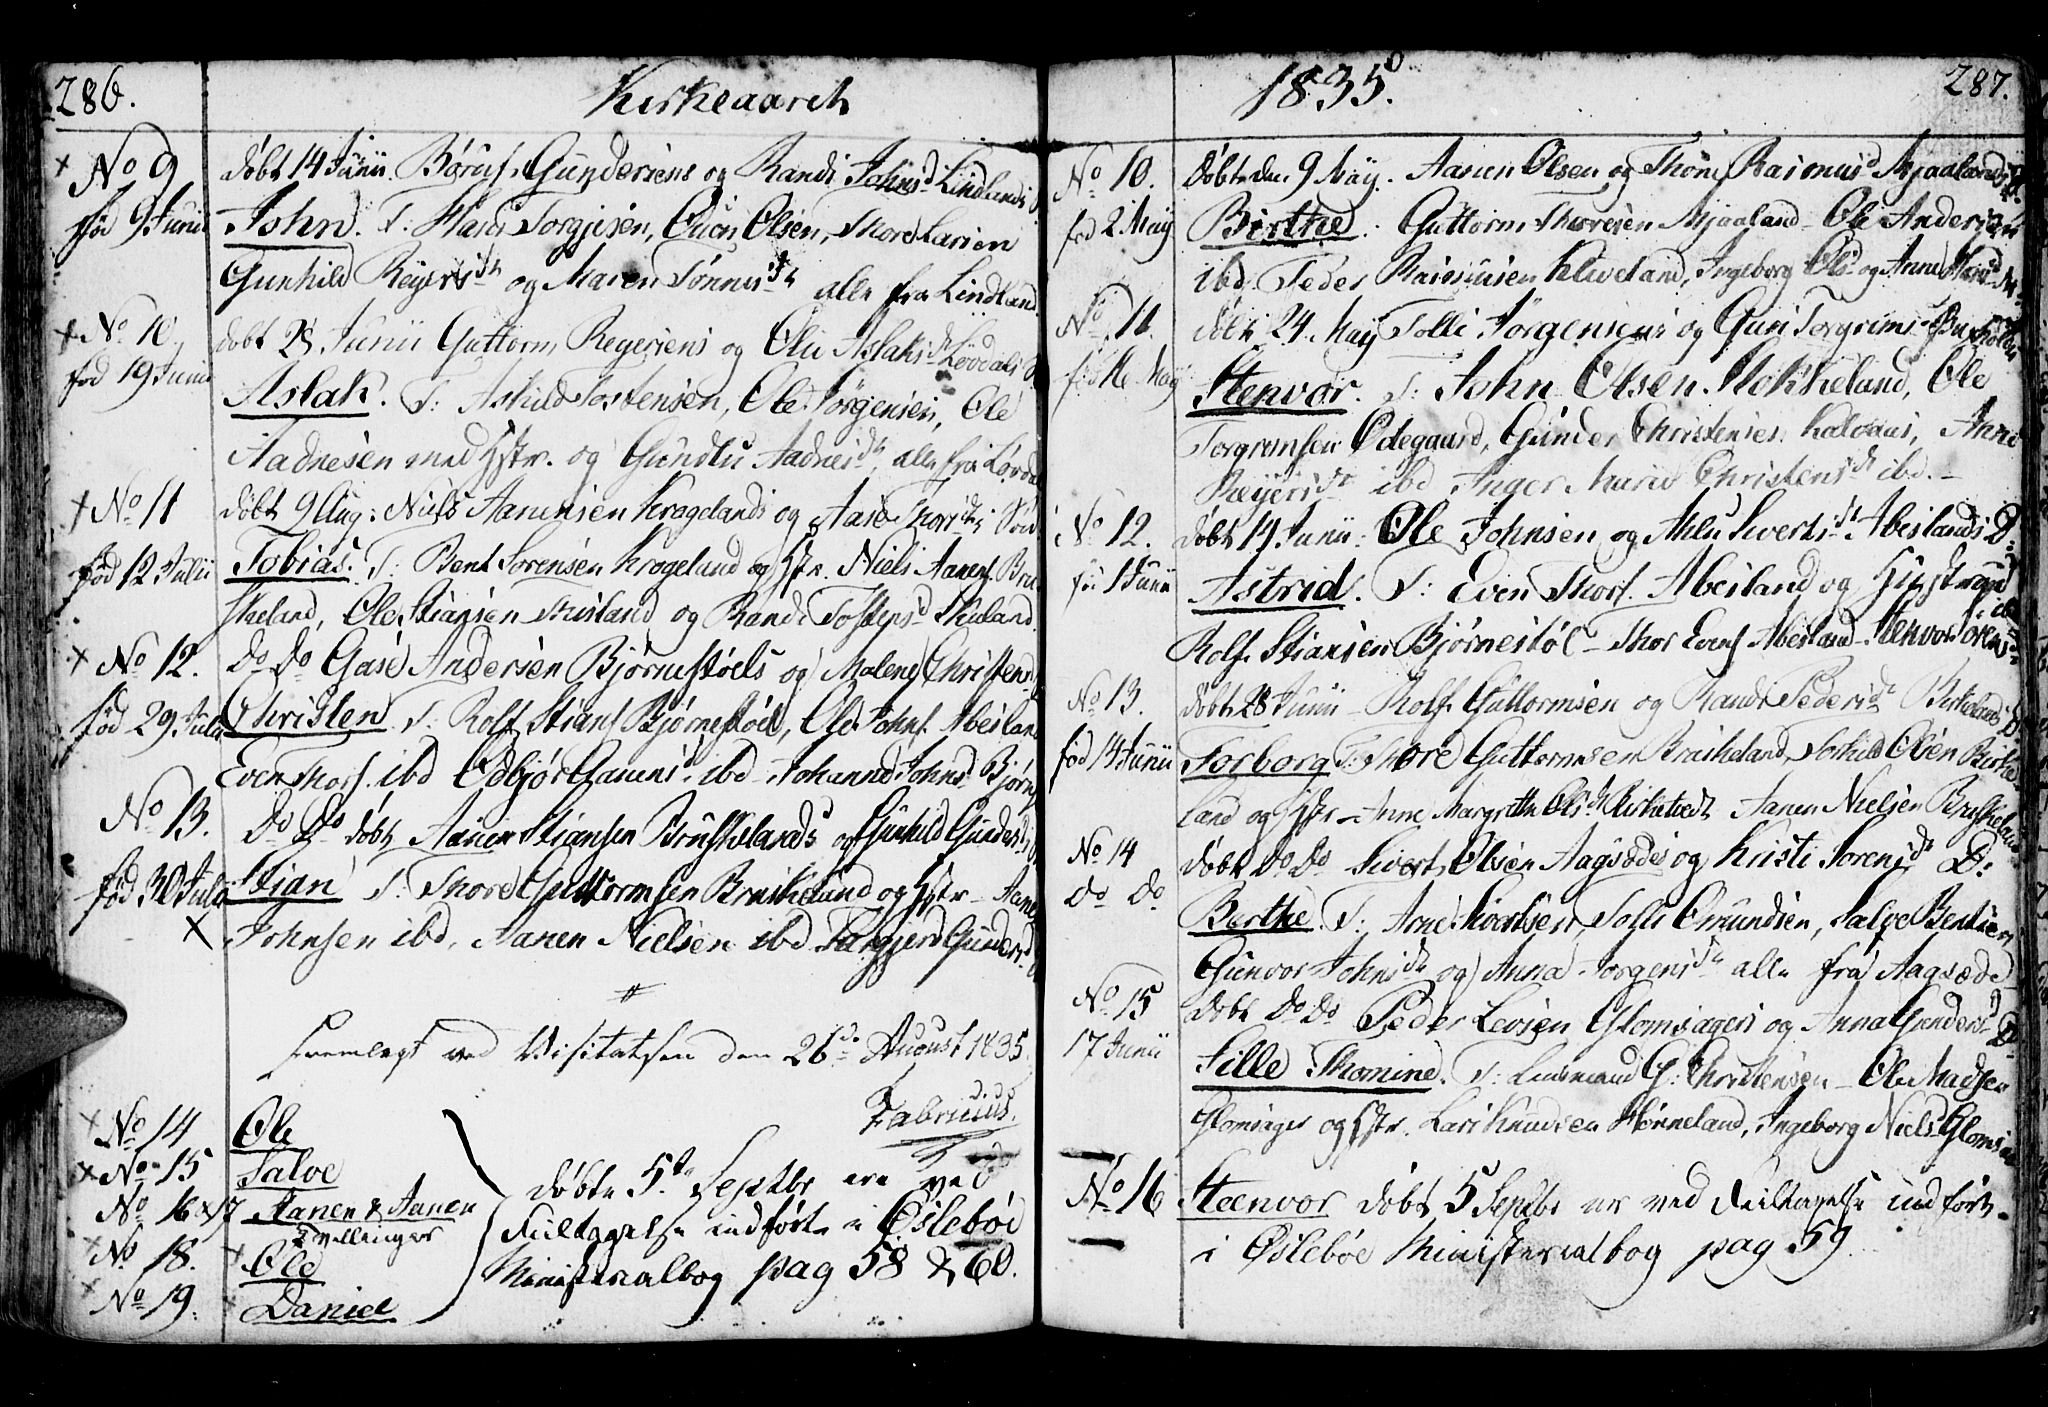 286.
Kirkeaaret
No 9
født 9 Junii
døbt 14 Junii. Børuf Gundersens og Randi Johnsd Lindlands
John. T: Hans Torgjisen, Even Olsen, Thore Larsen
Gunhild Reyersdt og Maren Tønnesdt alle fra Lindland.
No 10.
fød 19 Junii
døbt 28 Junii Guttorm Reyersens og Oli Aslaksdt Løvdals
Aslak. T: Askild Tostensen, Ole Jørgensen, Ole
Aadnesen med Hstr. og Gundlu Aadnesdt, alle fra Løvdal
No 11
fød 12 Julii
døbt 9 Aug: Niels Aanensen Kragelands og Aase Thorsdt
Tobias. T: Bent Sørensen Krageland og Hstr. Niels Aanens. Bru
skeland, Ole Stiansen Skuland og Randi Tostensd Skuland.
No 12.
fød 29 Julii
Do Do Gase Andersen Bjørnestøels og Malene Christens
Christen. T: Rolf Stians Bjørnestøel, Ole Johns. Abesland
Even Thors. ibd Odbjør Gasens ibd Johanne Johns Bjørn
No 13.
fød 30 Julii
Do Do døbt Aanen Stiansen Bruskelands og Gunhild Gundersd
Stian T: Thore Guttormsen Bruskeland og Hstr Aanen
Johnsen ibd, Aanen Nielsen ibd Torgjerd Gundersd
Fremlagt ved Visitatsen den 26de August 1835.
Fabricius.
No 14 Ole
No 15 Salve
No 16 & 17 Aanen & Aanen
Tvillinger
No 18. Ole
No 19. Daniel
døbte 5te Septbr ere ved
Feiltagelse indførte i Øslebøe
Ministerialbog pag 58 & 60.
1835.
287.
No 10.
fød 2 May
døbt den 9 May. Aanen Olsen og Thone Rasmusd Mjaalands
Birthe. Guttorm Thoresen Mjaaland Ole Andersen
ibd. Peder Rasmusen Kleveland, Ingeborg Olsd og Anne
No 11.
fød 16 May
døbt 24. May Tolli Jørgensens og Guri Torgrims
Stenvor. T: John Olsen Stokkeland, Ole
Torgrimsen Ødegaard, Gunder Christensen Kalvaas, Anne
Reyersdt ibd Inger Marie Christensdt ibd.
No 12.
fød 1 Junii
døbt 14 Junii: Ole Johnsen og Ahlu Sivertsdt Abeslands D.
Astrid. T: Even Thors. Abesland og
Rolf Stiansen Bjørnestøl Thor Evens Abesland Stenvor Sørens
No 13.
fød 14 Junii
døbt 28 Junii Rolf Guttormsen og Randi Pedersdt Birkelands D
Torborg T: Thore Guttormsen Bruskeland, Torkild Olsen Birke
land og Hstr Anne Margrethe Olsdt Birkeland Aanen Nielsen Bruskeland
No 14
Do Do
døbt Do Do Sivert Olsen Aagsædes og Kristi Sørensdt D:
Berthe T: Arne Sivertsen, Tolli Omundsen, Salve Bentsen
Gunvor Johnsdt og Anna Jorgensdt alle fra Aagsæde
No 15
17 Junii
døbt Do Do Peder Levsen Glomsagers og Anna Gundersd D
Sille Thomine. T: Lensmand G: Christensen Ole Madsen
Glomsager og Hstr. Lars Knudsen Hønneland, Ingeborg Nielsd Glomsager
No 16
Steenvor døbt 5 Septbr er ved Feiltagelse indført
i Øslebøe Ministerialbog pag 59